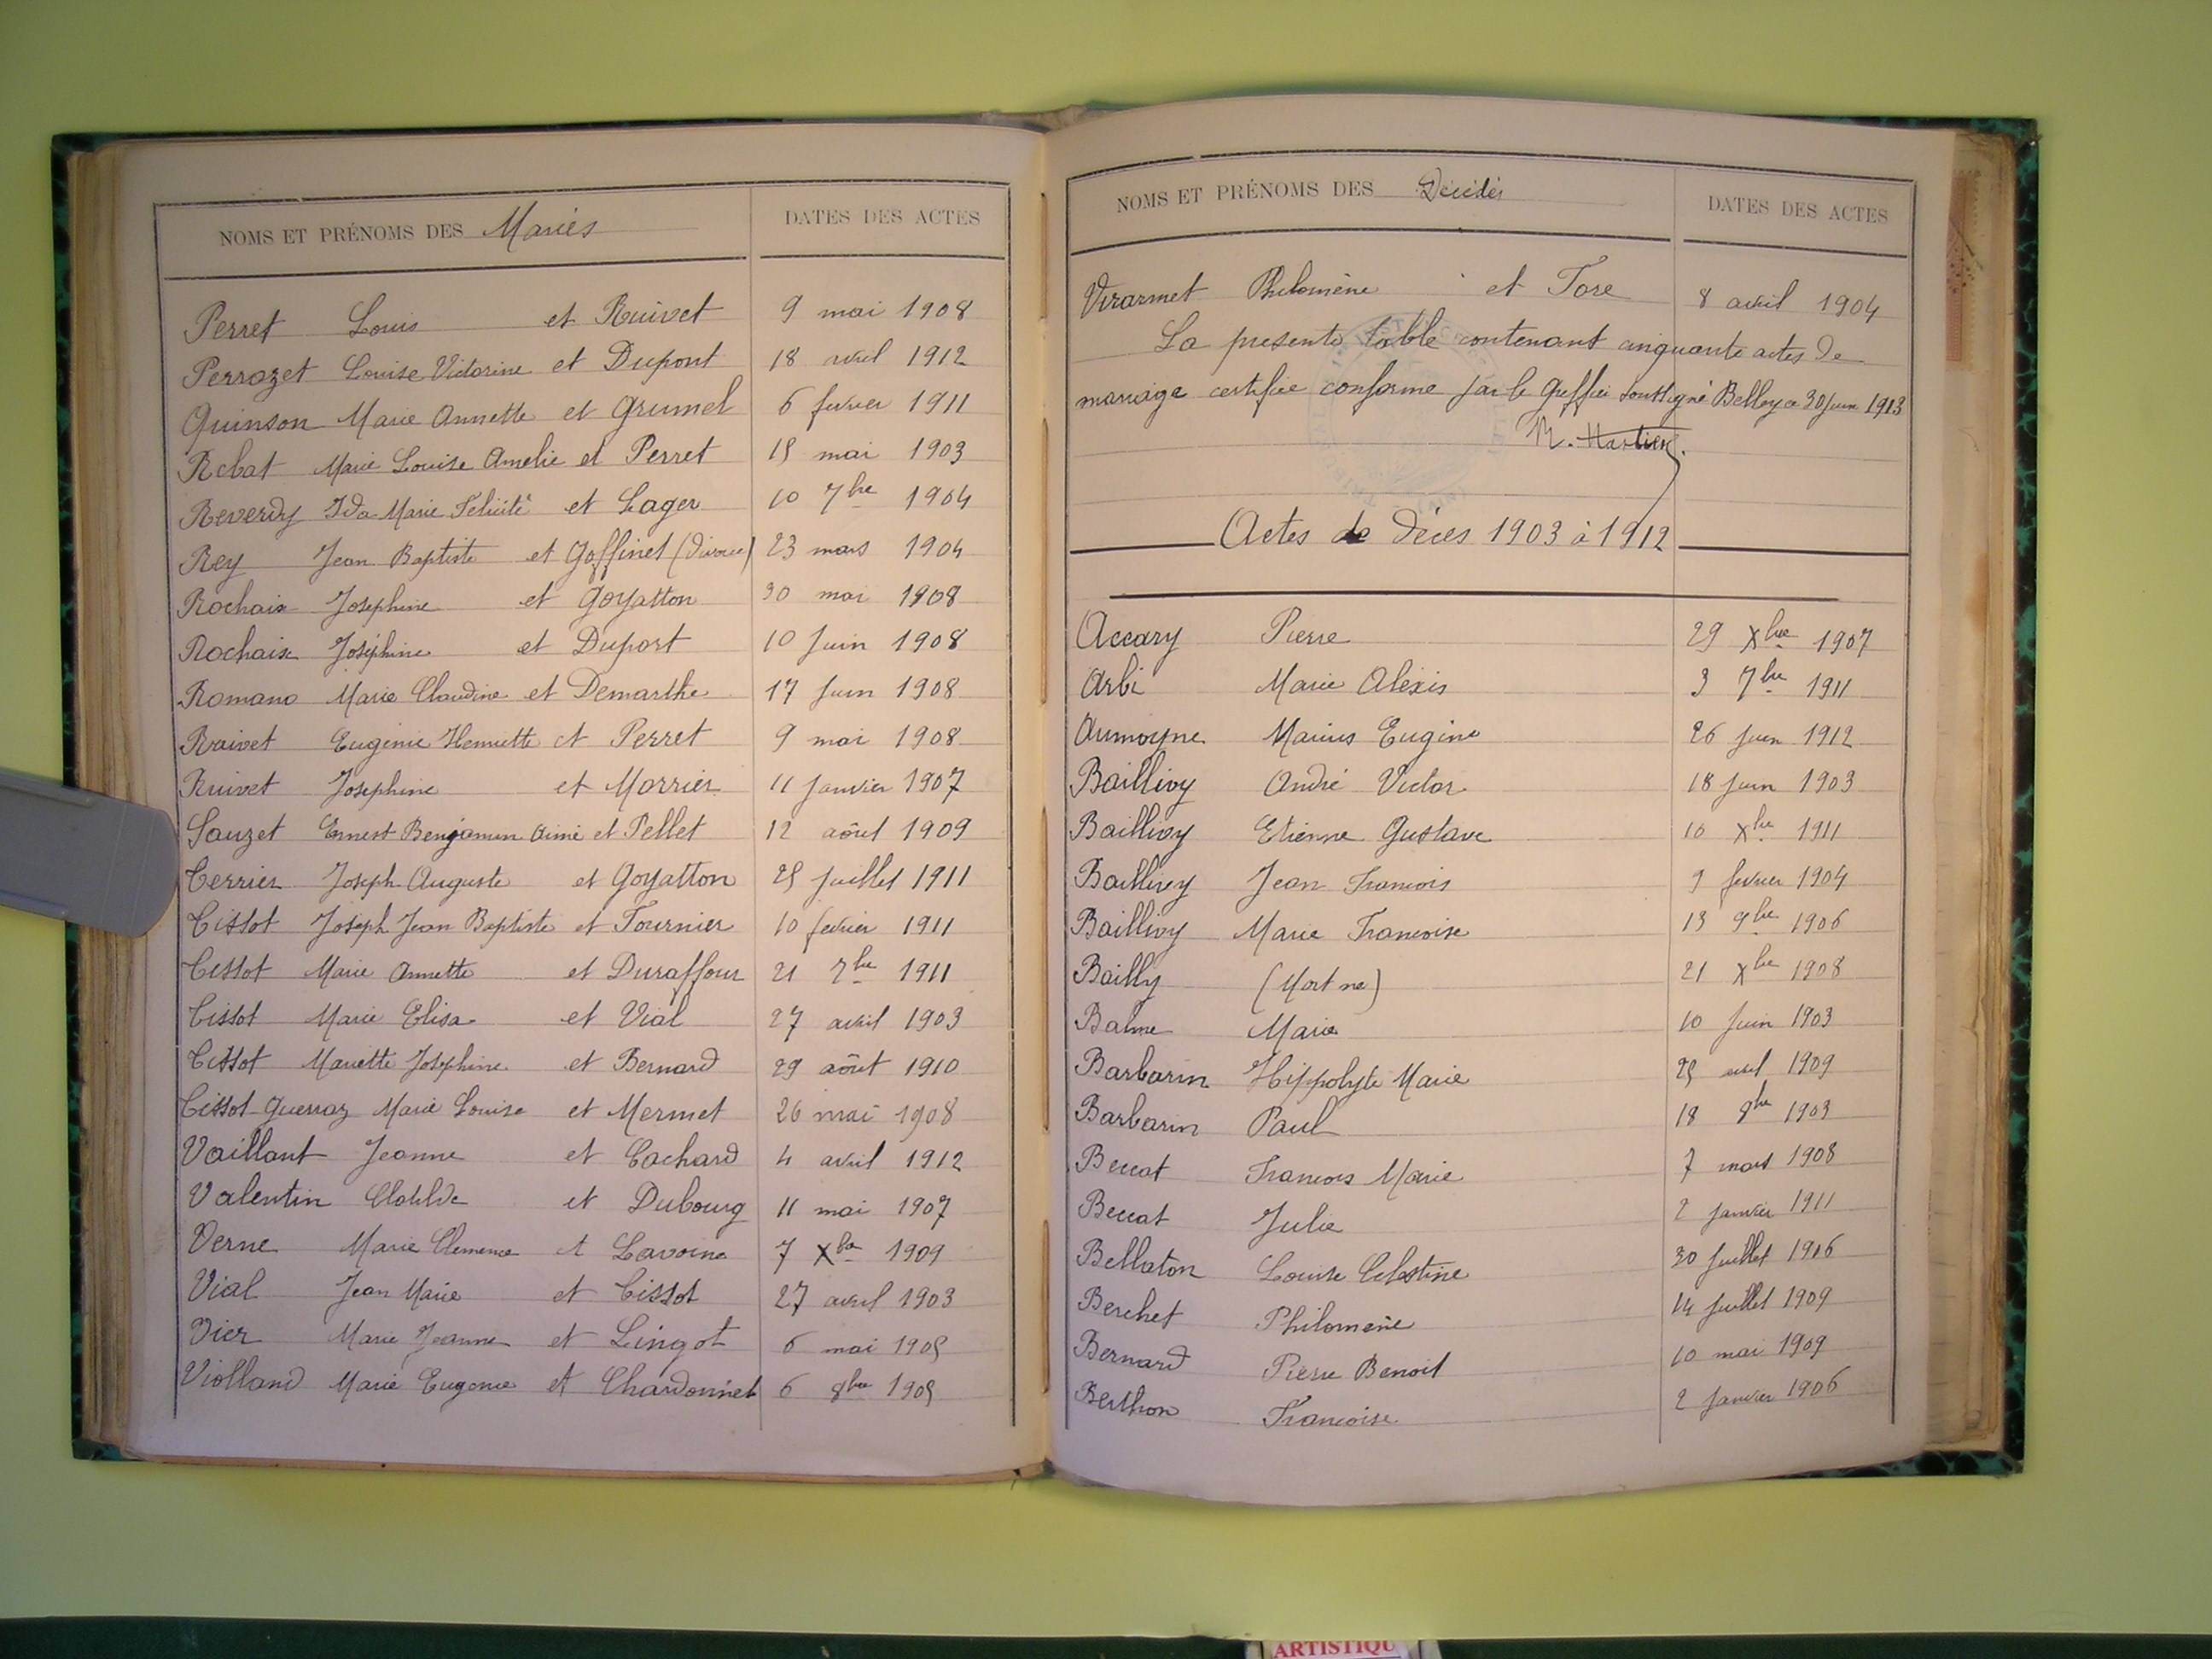 NOMS ET PRÉNOMS DES Mariés DATES DES ACTES
Perret Louis et Ruivet 9 mai 1908
Perrozet Louise Victorine et Dupont 18 avril 1912
Quinson Marie Annette et Grumel 6 fevrier 1911
Rebat Marie Louise Amelie et Perret 15 mai 1903
Reverdy Ida Marie Felicité et Lager 10 7bre 1904
Rey Jean Baptiste et Goffinet (divorce) 23 mars 1904
Rochaix Josephine et Goyatton 30 mai 1908
Rochaix Joséphine et Duport 10 Juin 1908
Romano Marie Claudine et Demarthe 17 Juin 1908
Ruivet Eugenie Henriette et Perret 9 mai 1908
Ruivet Josephine et Morrier 11 Janvier 1907
Sauzet Ernest Benjamin Aimé et Pellet 12 août 1909
Terrier Joseph Auguste et Goyatton 25 Juillet 1911
Tissot Joseph Jean Baptiste et Fournier 10 fevrier 1911
Tissot Marie Annette et Duraffour 21 7bre 1911
Tissot Marie Elisa et Vial 27 avril 1903
Tissot Mariette Josephine et Bernard 29 août 1910
Tissot-Guerraz Marie Louise et Mermet 26 mai 1908
Vaillant Jeanne et Cachard 4 avril 1912
Valentin Clotilde et Dubourg 11 mai 1907
Verne Marie Clemence et Lavoine 7 Xbre 1909
Vial Jean Marie et Tissot 27 avril 1903
Vier Marie Jeanne et Lingot 6 mai 1905
Violland Marie Eugenie et Chardonnet 6 8bre 1905
NOMS ET PRÉNOMS DES Décédés DATES DES ACTES
Virarmet Philomène et Tore 8 avril 1904
La presente table contenant cinquante actes de
mariage certifiée conforme par le Greffier soussigné Belley ce 30 Juin 1913
Actes de Décès 1903 à 1912
Accary Pierre 29 Xbre 1907
Arbi Marie Alexis 3 7bre 1911
Aumoyne Marius Eugène 26 Juin 1912
Baillivy André Victor 18 Juin 1903
Baillivy Etienne Gustave 10 Xbre 1911
Baillivy Jean Francois 9 fevrier 1904
Baillivy Marie Francoise 13 9bre 1906
Bailly (Mort né) 21 Xbre 1908
Balme Marie 10 Juin 1903
Barbarin Hippolyte Marie 25 avril 1909
Barbarin Paul 18 8bre 1903
Beccat Francois Marie 7 mars 1908
Beccat Julie 2 Janvier 1911
Bellaton Louise Celestine 30 Juillet 1906
Berchet Philomène 14 Juillet 1909
Bernard Pierre Benoit 10 mai 1909
Berthon Francoise 2 Janvier 1906
ARTISTIQU